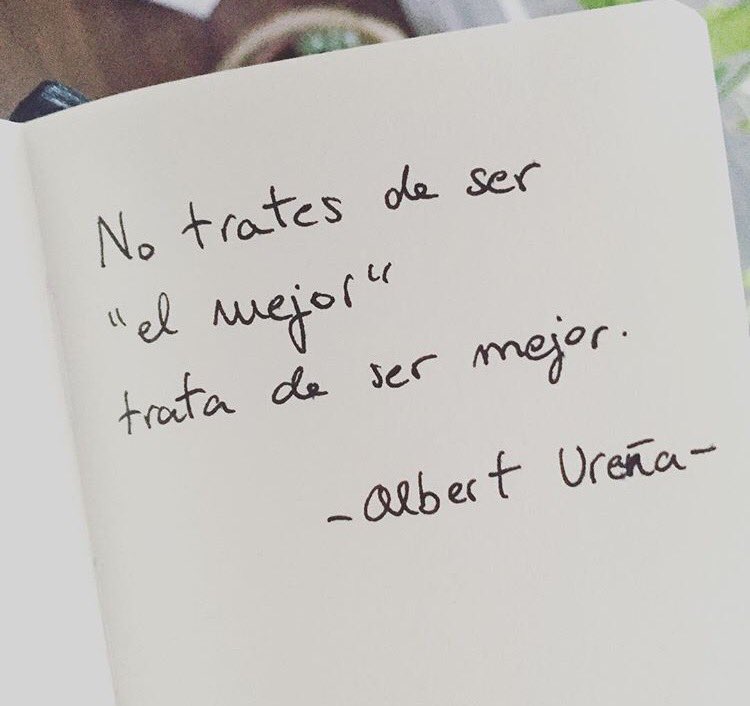 No trates de ser
"el mejor"
trata de ser mejor.
-Albert Ureña-